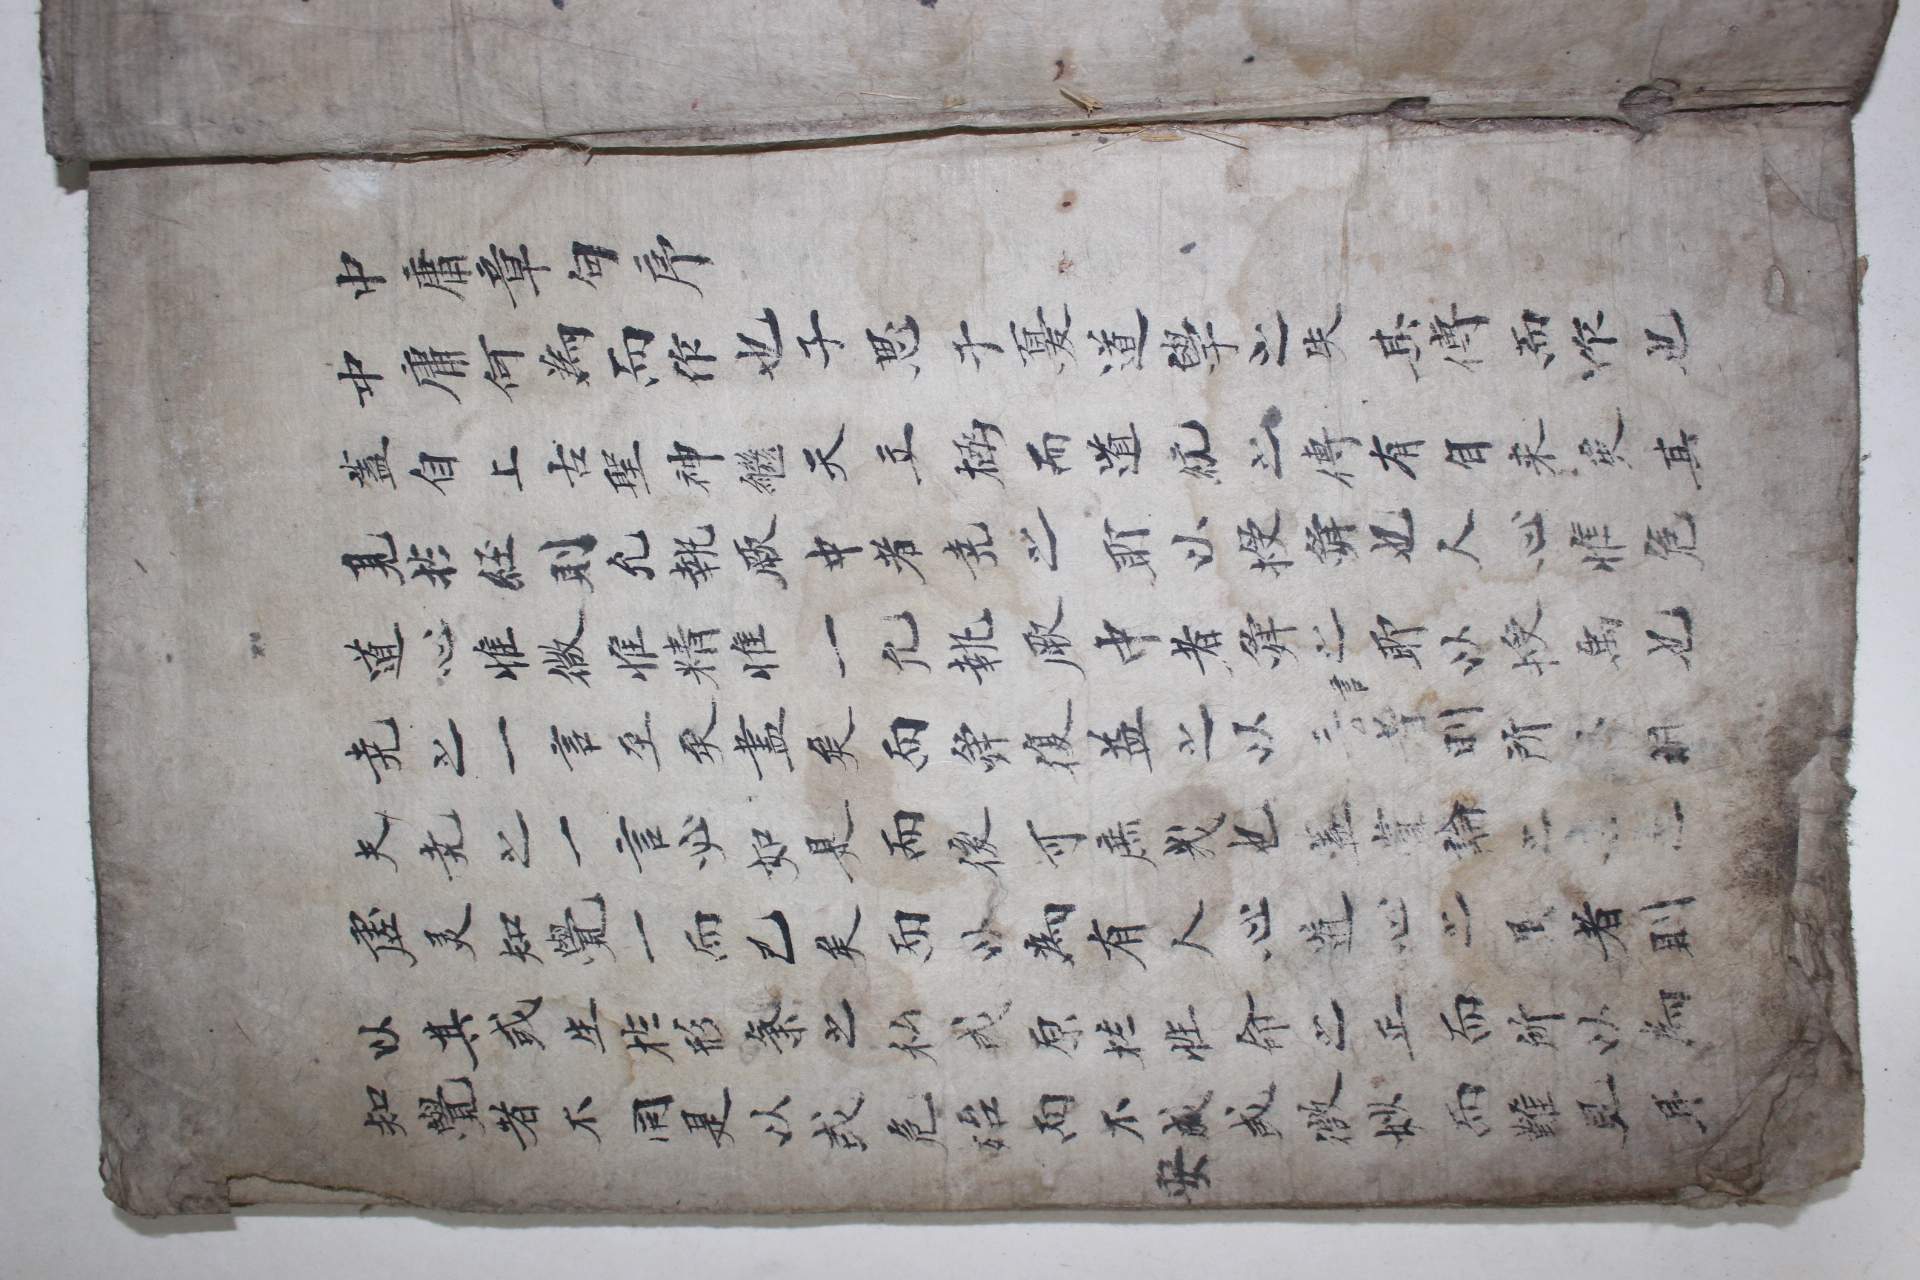 中庸章句序
中庸何為而作也子思子憂道學之失其傳而作也
蓋自上古聖神継天立極而道統之傳有自来矣其
見於経則允執厥中者堯之所以授舜也人心惟危
道心惟微惟精惟一允執厥中者舜之所以授禹也
堯之一言至矣盡矣而舜復益之以三言則所以明
夫堯之一言必如是而後可庶幾也蓋嘗論之心之
虛灵知覺一而已矣而以為有人心道心之異者則
以其或生於形氣之私或原於性命之正而所以為
知覺者不同是以或危殆而不安或微妙而難見